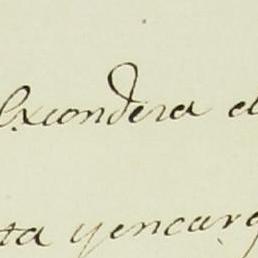 Excondera el
ta yencarg